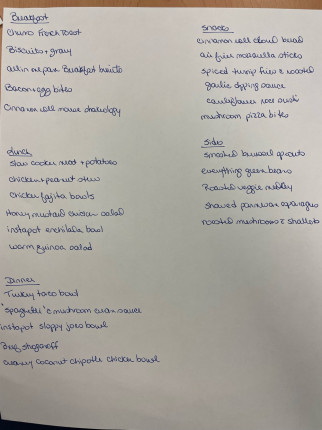 Breakfast
Churro French Toast
Biscuits + gravy
all in one pan Breakfast burrito
Bacon + egg bites
Cinnamon roll
Lunch
slow cooker meat + potatoes
chicken + peanut stew
chicken fajita bowls
Honey mustard chicken salad
instapot enchilada bowl
warm quinoa salad
Dinner
Turkey taco bowl
"spaghetti" c mushroom cream sauce
instapot sloppy joes bowl
Beef stroganoff
creamy coconut chipotle chicken bowl
snacks
cinnamon roll cloud bread
air fries mozzarella sticks
spiced turnip fries c roasted
garlic dipping sauce
cauliflower rice sushi
mushroom pizza bites
sides
smashed brussel sprouts
everything green beans
Roasted veggie medley
shaved parmesan asparagus
roasted mushrooms c shallots